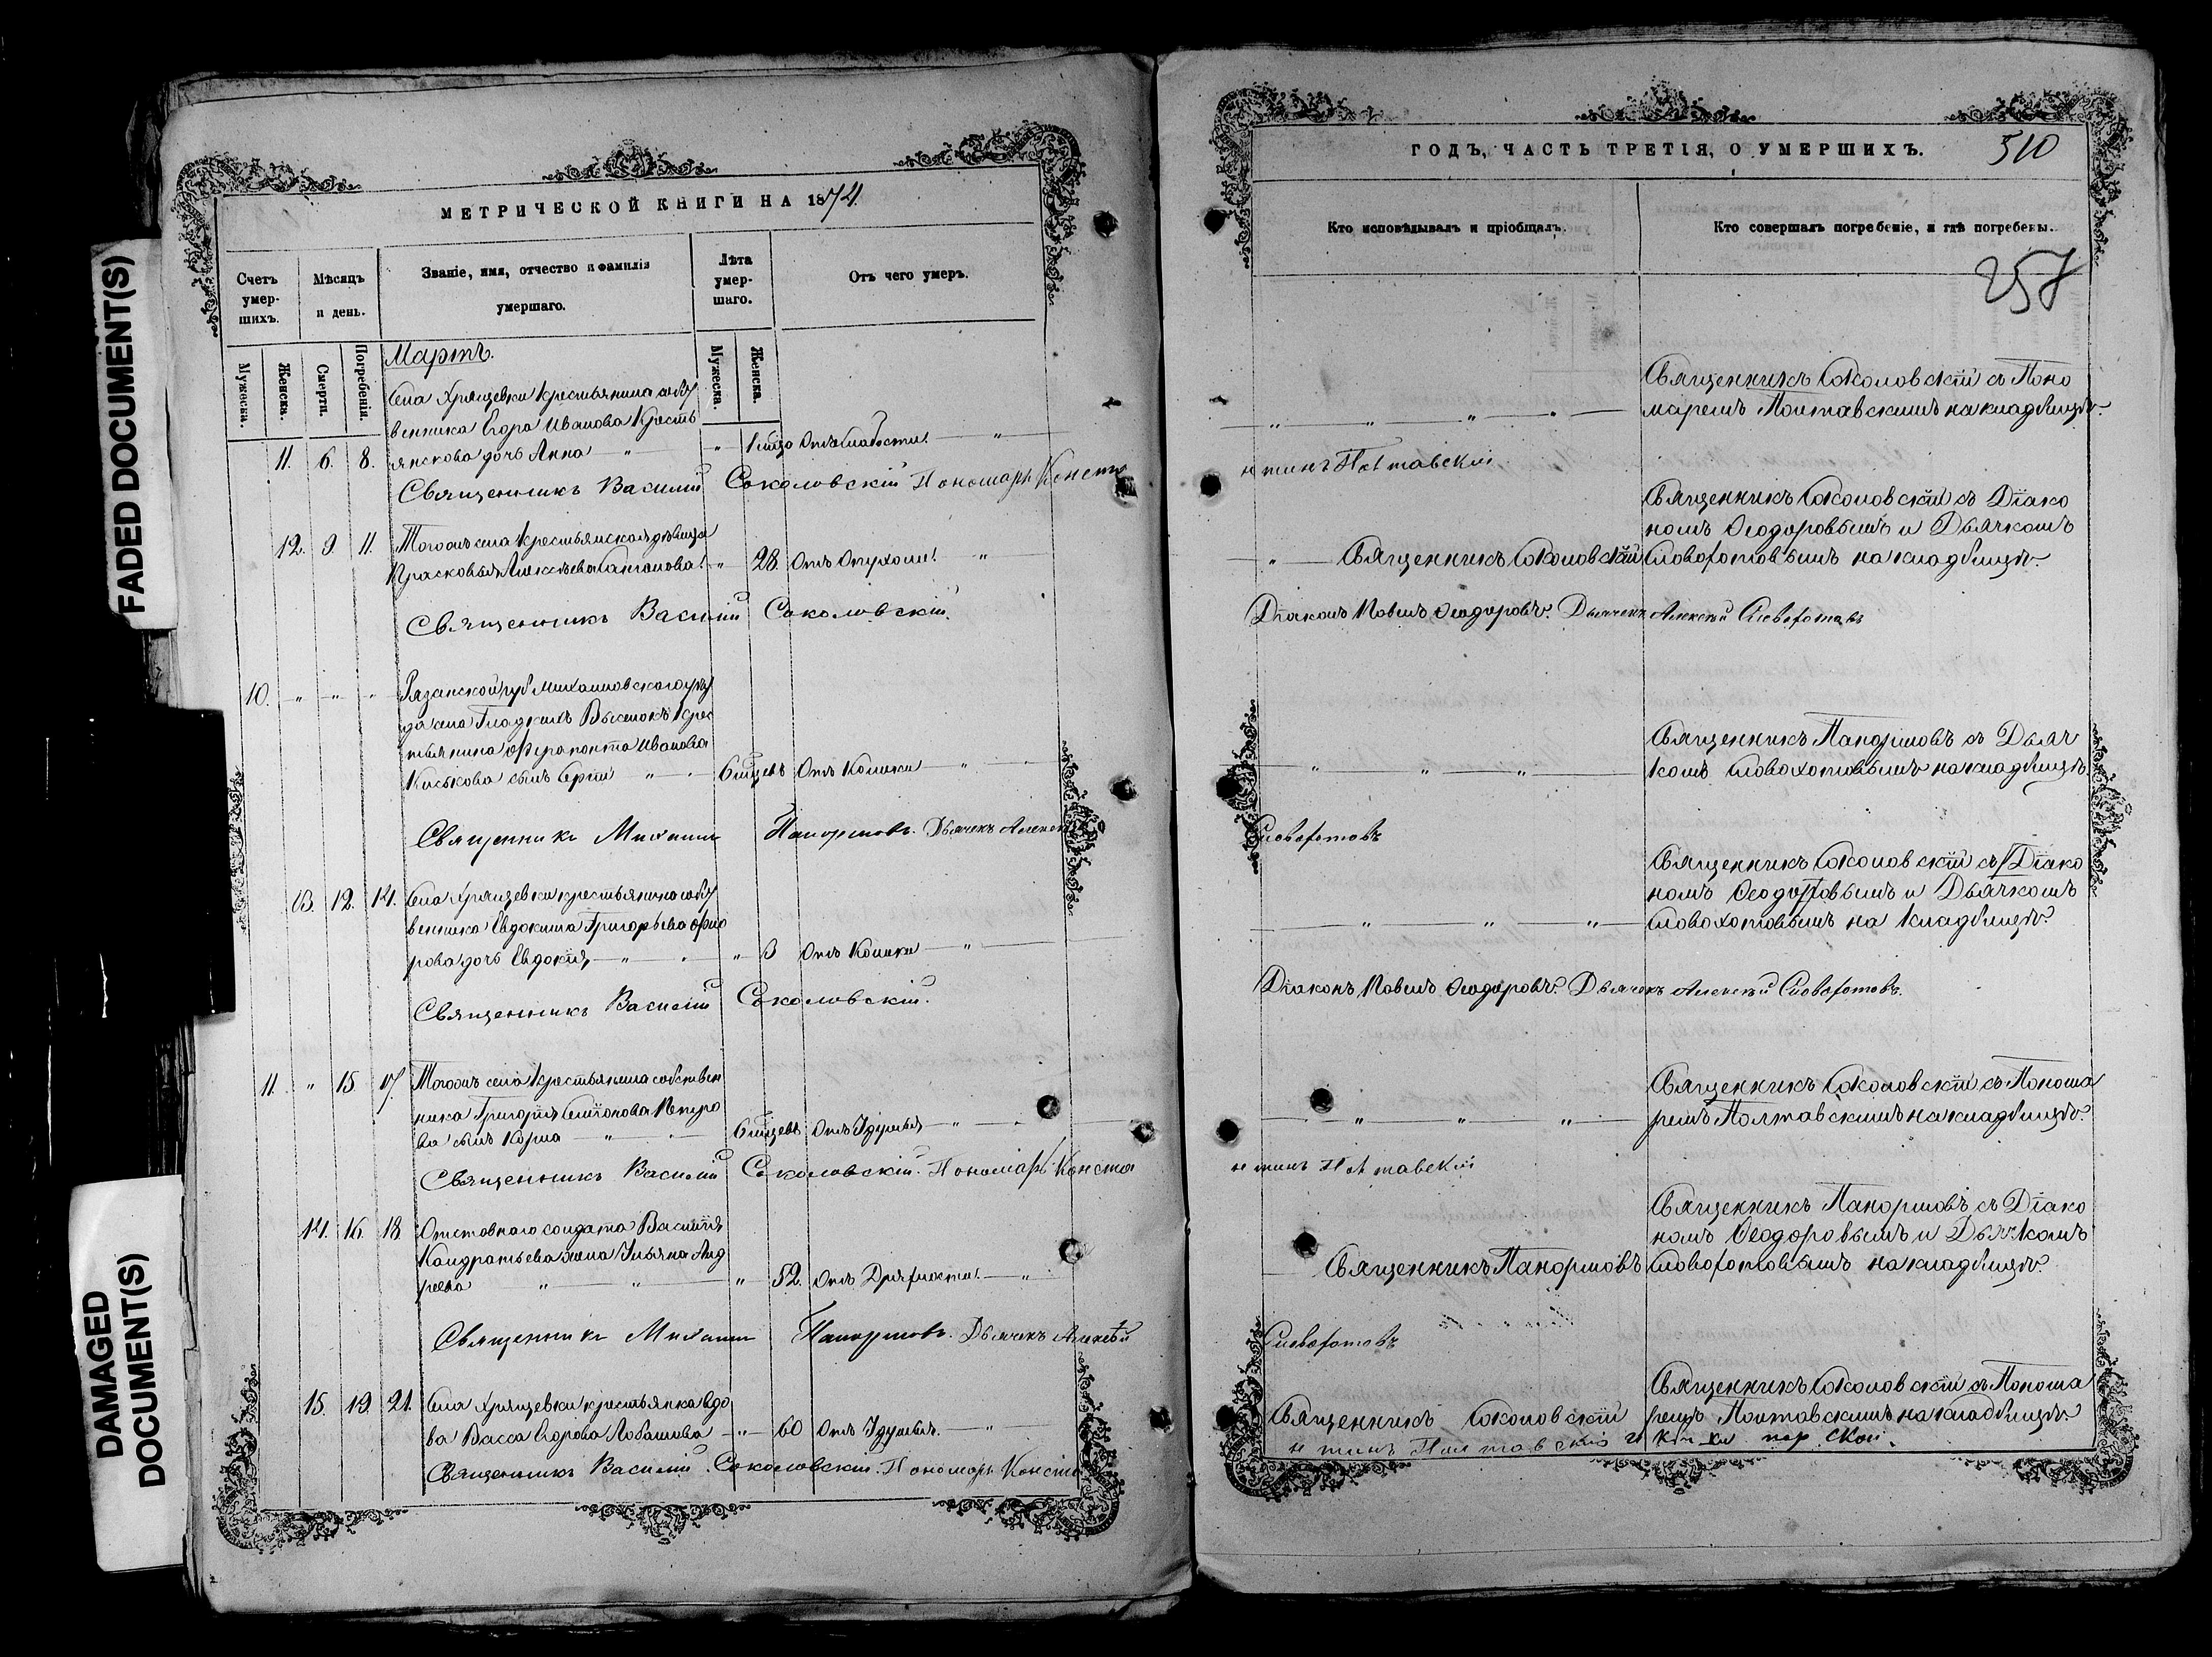 FADED DOCUMENT(S)
DAMAGED
DOCUMENT(S)
МЕТРИЧЕСКОЙ КНИГИ НА 1874.
Счетъ
умер-
шихъ.
Мѣсяцъ
и день.
Званіе, имя, отчество и фамилія
умершаго.
Лѣта
умер-
шаго.
Отъ чего умеръ.
Мужеска.
Женска.
Смерти.
Погребенія.
Мужеска.
Женска.
Мартъ.
Села Хрящевки крестьянина собст
венника Егора Иванова Кресть
11. 6. 8. янскова дочь Анна " " Отъ слабости. "
Священникъ Василій Соколовскій Пономарь Конста
12. 9. 11. Тогожъ села крестьянская дѣвица
Прасковья Алексѣева " 28. Отъ Опухоли. "
Священникъ Василій Соколовскій.
10. " " " Рязанской губ Михаиловского уѣз
да села Гладкихъ Высилокъ крес
тьянина Ферапонта Иванова
Киськова сынъ Сергій " " 6 мцевъ Отъ Колики "
Священникъ Михаилъ Панормовъ. Дьячекъ Алексѣй
13. 12. 14. Села Хрящевки крестьянина собст
венника Евдокима Григорьева Фио
рова дочь Евдокія " " " 3 Отъ Колики "
Священникъ Василій Соколовскій.
11. " 15 17. Тогожъ села крестьянина собствен
ника Григорія Симіонова Петро
ва сынъ Козма " " 6 мцевъ Отъ Удушья "
Священникъ Василій Соколовскій. Пономарь Конста
14. 16. 18. Отставнаго солдата Василія
Кандратьева жена Ульяна Анд
реева " " " 52. Отъ Дряхлости. "
Священникъ Михаилъ Панормовъ. Дьячекъ Алексѣй
15. 19. 21. Села Хрящевки крестьянка вдо
ва Васса Егорова Лобашова " 60 Отъ Удушья. "
Священникъ Василій Соколовскій. Пономарь Конста
ГОДЪ, ЧАСТЬ ТРЕТІЯ, О УМЕРШИХЪ.
510
Кто исповѣдывалъ и пріобщалъ.
Кто совершалъ погребеніе, и гдѣ погребены.
257
Священникъ Соколовскій съ Поно
" " " " маремъ Полтавскимъ на кладбищѣ.
нтинъ Полтавскій
Священникъ Соколовскій съ Діако
номъ Ѳеодоровымъ и Дьячкомъ
" Священникъ Соколовскій Словохотовымъ на кладбищѣ.
Діаконъ Павелъ Ѳеодоровъ. Дьячекъ Алексѣй Словохотовъ
Священникъ Панормовъ съ Дьяч
" " " комъ Словохотовымъ на кладбищѣ
Словохотовъ
Священникъ Соколовскій съ Діако
номъ Ѳеодоровымъ и Дьячкомъ
" " " Словохотовымъ на кладбищѣ.
Діаконъ Павелъ Ѳеодоровъ. Дьячекъ Алексѣй Словохотовъ.
Священникъ Соколовскій съ Понома
" " " ремъ Полтавскимъ на кладбищѣ.
нтинъ Полтавскій
Священникъ Панормовъ съ Діако
номъ Ѳеодоровымъ и Дьячкомъ
Священникъ Панормовъ Словохотовымъ на кладбищѣ.
Словохотовъ
Священникъ Соколовскій съ Понома
Священникъ Соколовскій ремъ Полтавскимъ на кладбищѣ.
нтинъ Полтавскій